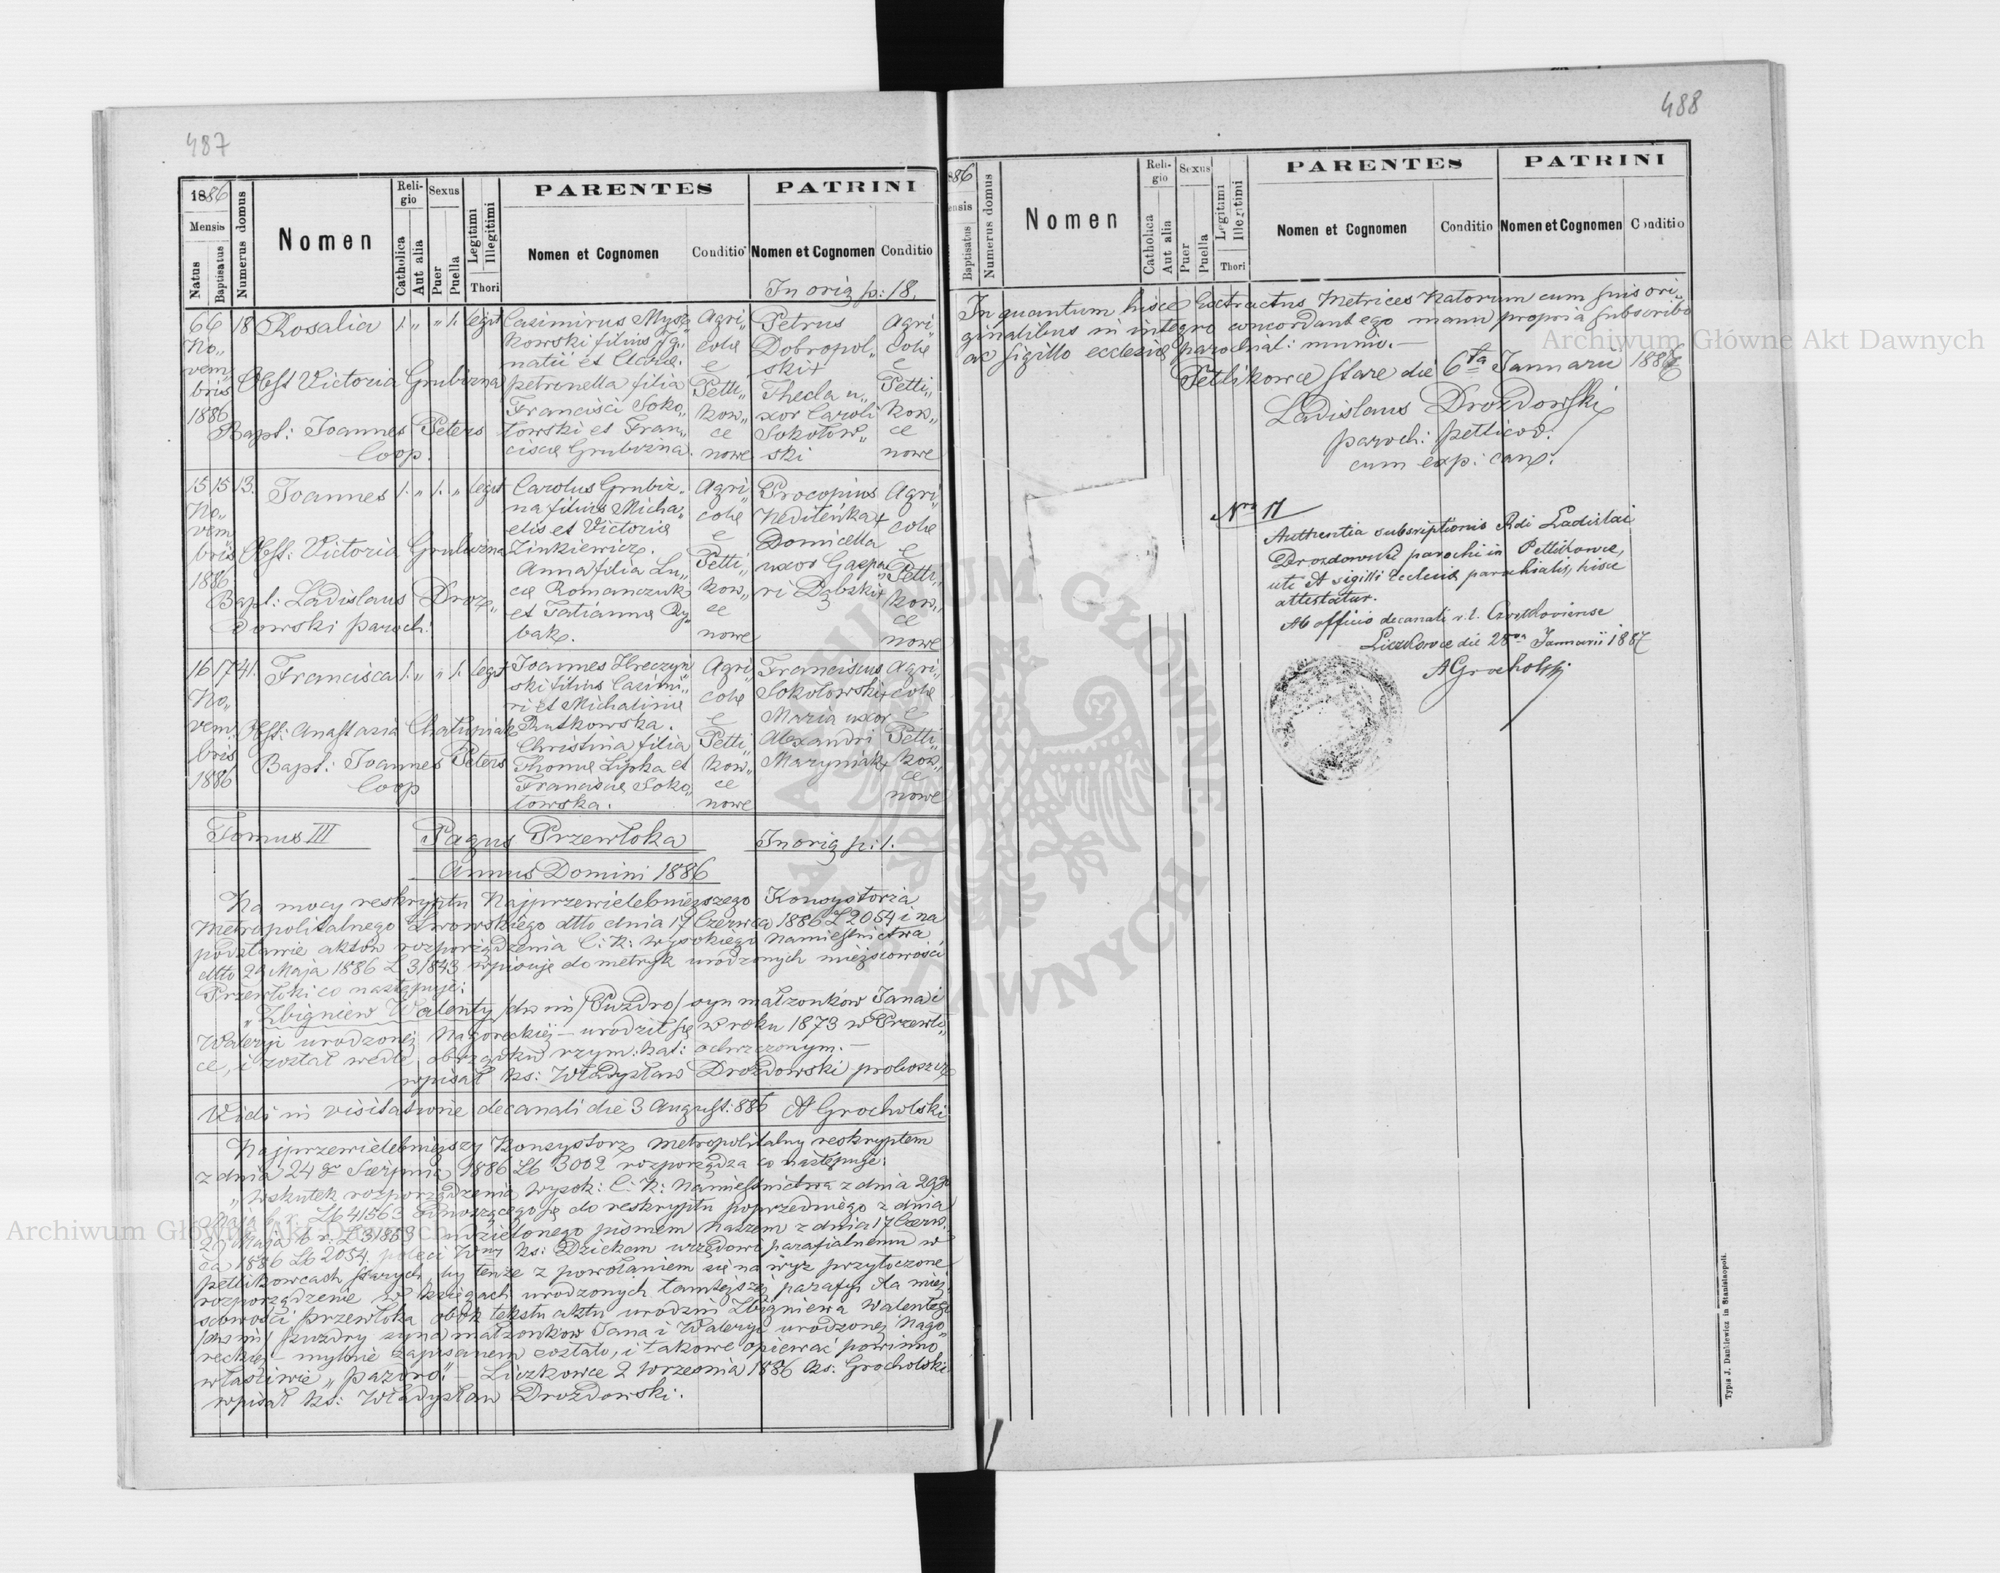 487
1886
Mensis
Natus
Baptisatus
Numerus domus
Nomen
Religio
Catholica
Aut alia
Sexus
Puer
Puella
Legitimi
Illegitimi
Thori
PARENTES
Nomen et Cognomen
Conditio
PATRINI
Nomen et Cognomen
Conditio
In orig p: 18.
6 6 18 Rosalia 1. „ „ 1. legit
No„
vem„
bris
1886
Obst Victoria Grubizna
Bapt: Joannes Peters
coop.
Casimirus Mysz„
kowski filius Ig„
natii et
Petronella filia
Francisci Soko„
łowski et Fran„
ciscæ Grubizna.
Agri„
colæ
e
Petli„
kow„
ce
nowe
Petrus
Dobropol„
ski +
Thecla u„
xor Caroli
Sokołow„
ski
Agri„
colæ
e
Petli„
kow„
ce
nowe
15 15 13. Joannes 1. „ 1. „ legit
No„
vem
bris
1886
Obst: Victoria Grubizna
Bapt: Ladislaus Droz„
dowski paroch:
Carolus Grubiz„
na filius Micha„
elis et Victoriæ
Zinkiewicz.
Anna filia Lu„
cæ Romanczuk
et Tatiannæ Ry„
bak.
Agri„
colæ
e
Petli„
kow„
ce
nowe
Procopius
Nediteńka +
Domicella
uxor Gaspa„
ri Dąbski +
Agri„
colæ
e
Petli„
kow„
ce
nowe
16 17 41. Francisca 1. „ „ 1. legit
No„
vem„
bris
1886
Obst: Anastasia Chałupniak
Bapt: Joannes Peters
coop
Joannes Hreczyń
ski filius Casimi„
ri et Michalinæ
Rutkowska.
Christina filia
Thomæ Lipka et
Franciscæ Soko„
łowska.
Agri„
colæ
e
Petli„
kow„
ce
nowe
Franciscus
Sokołowski +
Maria uxor
Alexandri
Maryniak +
Agri„
colæ
e
Petli„
kow„
ce
nowe
Tomus III Pagus Przewłoka In orig p: 1.
Annus Domini 1886
Na mocy reskryptu Najprzewielebniejszego Konsystorza
Metropolitalnego Lwowskiego dtto dnia 17 Czerwca 1886 L 2054 i na
podstawie aktów rozporządzenia C: K: wysokiego namiestnictwa
dtto 29 Maja 1886 L 31843 wpisuję do metryk urodzonych miejscowości
Przewłoki co następuje:
„Zbigniew Walenty /dw im/ Puzdro/ syn małżonków Jana i
Waleryi urodzonej Nagoreckiej – urodził się w roku 1873 w Przewło„
ce, i został wedle obrządku rzym: kat: ochrzczonym. –
wpisał ks: Władysław Drozdowski proboszcz
Vidi in visitatione decanali die 3 August: 886 A Grocholski
Najprzewielebniejszy Konsystorz metropolitalny reskryptem
z dnia 24 go Sierpnia 1886 Lb 3002 rozporządza co następuje:
„Wskutek rozporządzenia wysok: C: K: Namiestnictwa z dnia
Lb 41563 odnoszącego się do reskryptu poprzedniego z dnia
29 Maja b. r. L 31853 udzielonego pismem Naszem z dnia 17 Czerw„
ca 1886 Lb 2054. poleci Wny ks: Dziekan urzędowi parafialnemu w
Petlikowcach starych, by tenże z powołaniem się na wyż przytoczone
rozporządzenie w księgach urodzonych tamtejszej parafyi dla miej„
scowości Przewłoka obok tekstu aktu urodzin Zbigniewa Walentego
/dw im/ Puzdry syna małżonków Jana i Waleryi urodzonej Nago„
reckiej – mylnie zapisanem zostało, i takowe opiewać powinno
właściwie „Pazdro". – Liczkowce 2 Września 1886 ks: Grocholski
wpisał ks: Władysław Drozdowski.
488
886
ensis
Baptisatus
Numerus domus
Nomen
Religio
Catholica
Aut alia
Sexus
Puer
Puella
Legitimi
Illegitimi
Thori
PARENTES
Nomen et Cognomen
Conditio
PATRINI
Nomen et Cognomen
Conditio
In quantum hisce Extractus Metrices Natorum cum suis ori„
ginalibus in integro concordant ego manu propria subscribo
ac sigillo ecclesiæ parochial: munio. –
Petlikowce stare die 6ta Januarii 1887
Ladislaus Drozdowski
paroch: petlicov.
cum exp: can:
Nro 11
Authentia subscriptionis Rdi Ladislai
Drozdowski parochi in Petlikowce,
uti et sigilli Ecclesiæ parochialis, hisce
attestatur.
Ab officio decanali r. l. Czortkoviense
Liczkowce die 28va Januarii 1887
A Grocholski
Typis J. Dankiewicz in Stanislaopoli.
Archiwum Główne Akt Dawnych
Archiwum Główne Akt Dawnych
ARCHIWUM GŁÓWNE AKT DAWNYCH